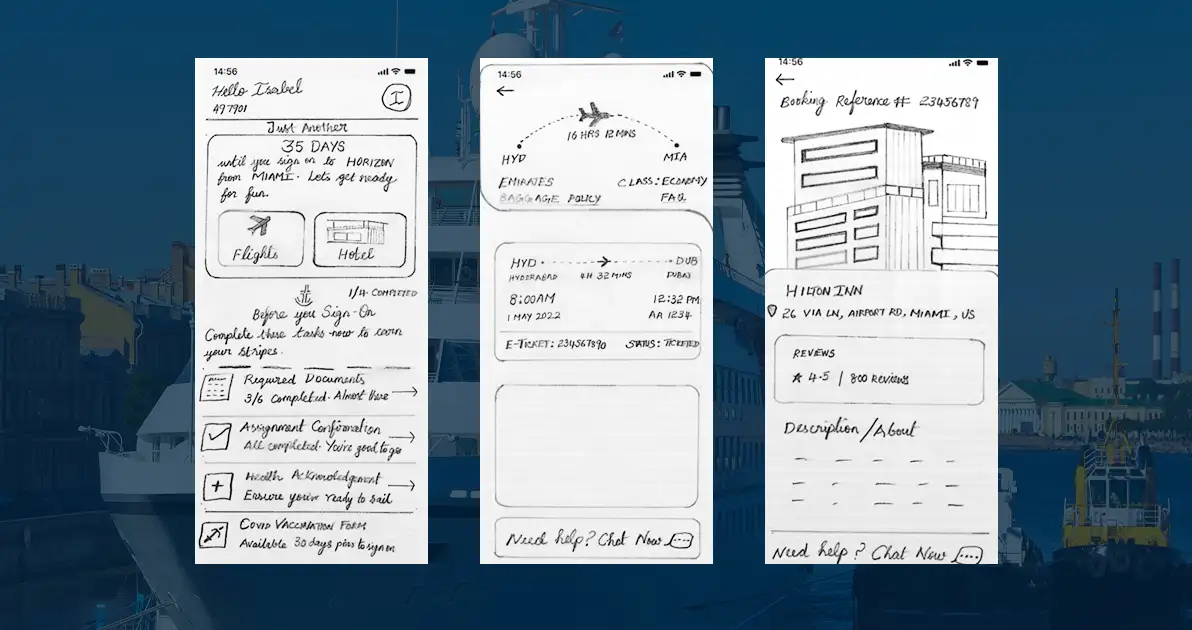 14:56
Hello Isabel
497901
I
Just Another
35 DAYS
until you sign on to HORIZON
from MIAMI. Lets get ready
for fun.
Flights
Hotel
1/4 COMPLETED
Before you Sign-On
Complete these tasks now to earn
your stripes.
Required Documents
3/6 Completed. Almost there
Assignment Confirmation
All completed. You're good to go
Health Acknowledgement
Ensure you're ready to sail
COVID VACCINATION FORM
Available 30 days prior to sign on
14:56
16 HRS 12 MINS
HYD
MIA
EMIRATES
CLASS: ECONOMY
BAGGAGE POLICY
FAQ
HYD
DUB
HYDERABAD
4H 32 MINS
DUBAI
8:00AM
12:32 PM
1 MAY 2022
AA 1234
E-TICKET: 234567890
STATUS: TICKETED
Need help? Chat Now
14:56
Booking Reference # 23456789
HILTON INN
26 VIA LN, AIRPORT RD, MIAMI, US
REVIEWS
★ 4.5 | 800 Reviews
Description/About
Need help? Chat Now